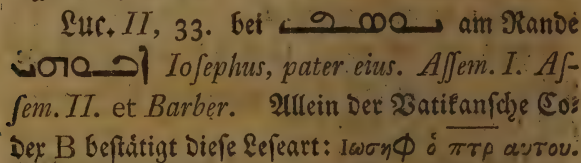 Luc. II, 33. bei ܝܘܣܦ am Rande
ܐܒܘܗܝ Ioſephus, pater eius. Aſſem. I. Aſ-
ſem. II. et Barber. Allein der Vatikanſche Co-
dex B beſtätigt dieſe Leſeart: Ιωσηφ ὁ πτρ αυτου.